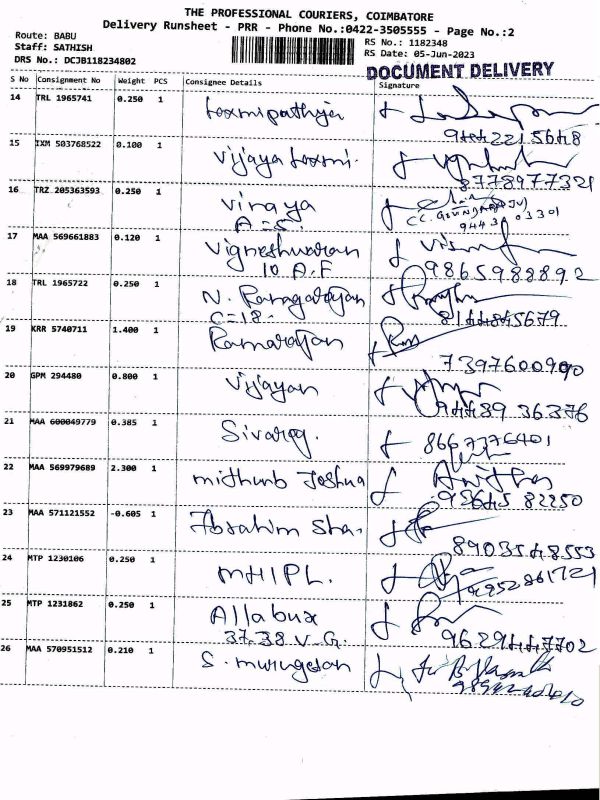 THE PROFESSIONAL COURIERS, COIMBATORE
Delivery Runsheet - PRR - Phone No.:0422-3505555 - Page No.:2
Route: BABU
Staff: SATHISH
DRS No.: DCJB118234802
RS No.: 1182348
RS Date: 05-Jun-2023
DOCUMENT DELIVERY
S No Consignment No Weight PCS Consignee Details Signature
14 TRL 1965741 0.250 1
15 IXM 503768522 0.100 1 Vijaya Laxmi.
8778977321
16 TRZ 205363593 0.250 1 Vinaya
17 MAA 569661883 0.120 1 Vigneshwaran
10 A.F
9865988892
18 TRL 1965722 0.250 1 N.
C=18-
8144845679
19 KRR 5740711 1.400 1
7397600990
20 GPM 294480 0.800 1 Vijayan
94489 36376
21 MAA 600049779 0.385 1 Sivaraj.
8667776401
22 MAA 569979689 2.300 1 Joshua
82250
23 MAA 571121552 -0.605 1 Ibrahim Sha.
8903548553
24 MTP 1230106 0.250 1 MHIPL.
9952861721
25 MTP 1231862 0.250 1 Allabux
37.38 V.G.
9629447702
26 MAA 570951512 0.210 1 S. Murugesan